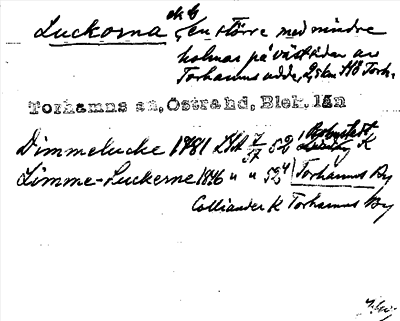 Luckorna ök 6
en större med mindre
holmar på västsidan av
Torhamns udde, 2,5 km SSO Torh.
Torhamns sn, Östra hd, Blek. län
Dimmelucke 1781 LSA 52 K
Limme-Luckerne 1846 " " 52 4 Torhamns By
Colliander K Torhamns By